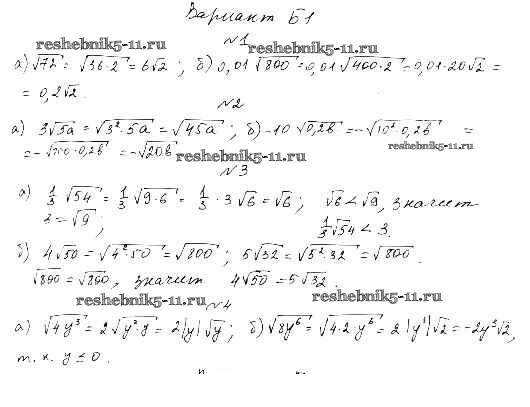 Вариант Б1
№1
reshebnik5-11.ru
а) √72 = √36·2 = 6√2 ; б) 0,01√800 = 0,01√400·2 = 0,01·20√2 =
= 0,2√2.
№2
а) 3√5a = √3²·5a = √45a ; б) -10√0,2b = -√10²·0,2b =
reshebnik5-11.ru
= -√100·0,2b = -√20b
reshebnik5-11.ru
№3
а) 1/3 √54 = 1/3 √9·6 = 1/3 · 3√6 = √6 ; √6 < √9, значит
3 = √9 ; 1/3 √54 < 3.
б) 4√50 = √4²·50 = √800 ; 5√32 = √5²·32 = √800.
√800 = √800, значит 4√50 = 5√32.
reshebnik5-11.ru reshebnik5-11.ru
№4
а) √4y³ = 2√y²·y = 2|y|√y ; б) √8y⁶ = √4·2y⁶ = 2|y³|√2 = -2y³√2,
т.к. y ≤ 0.